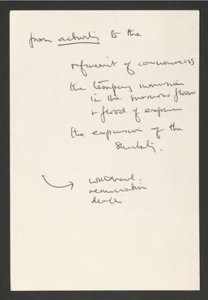 from activity to the
refinement of consciousness
the temporary immersion
in the sensuous flow
+ flood of
the expansion of the
withdrawal.
renunciation
death